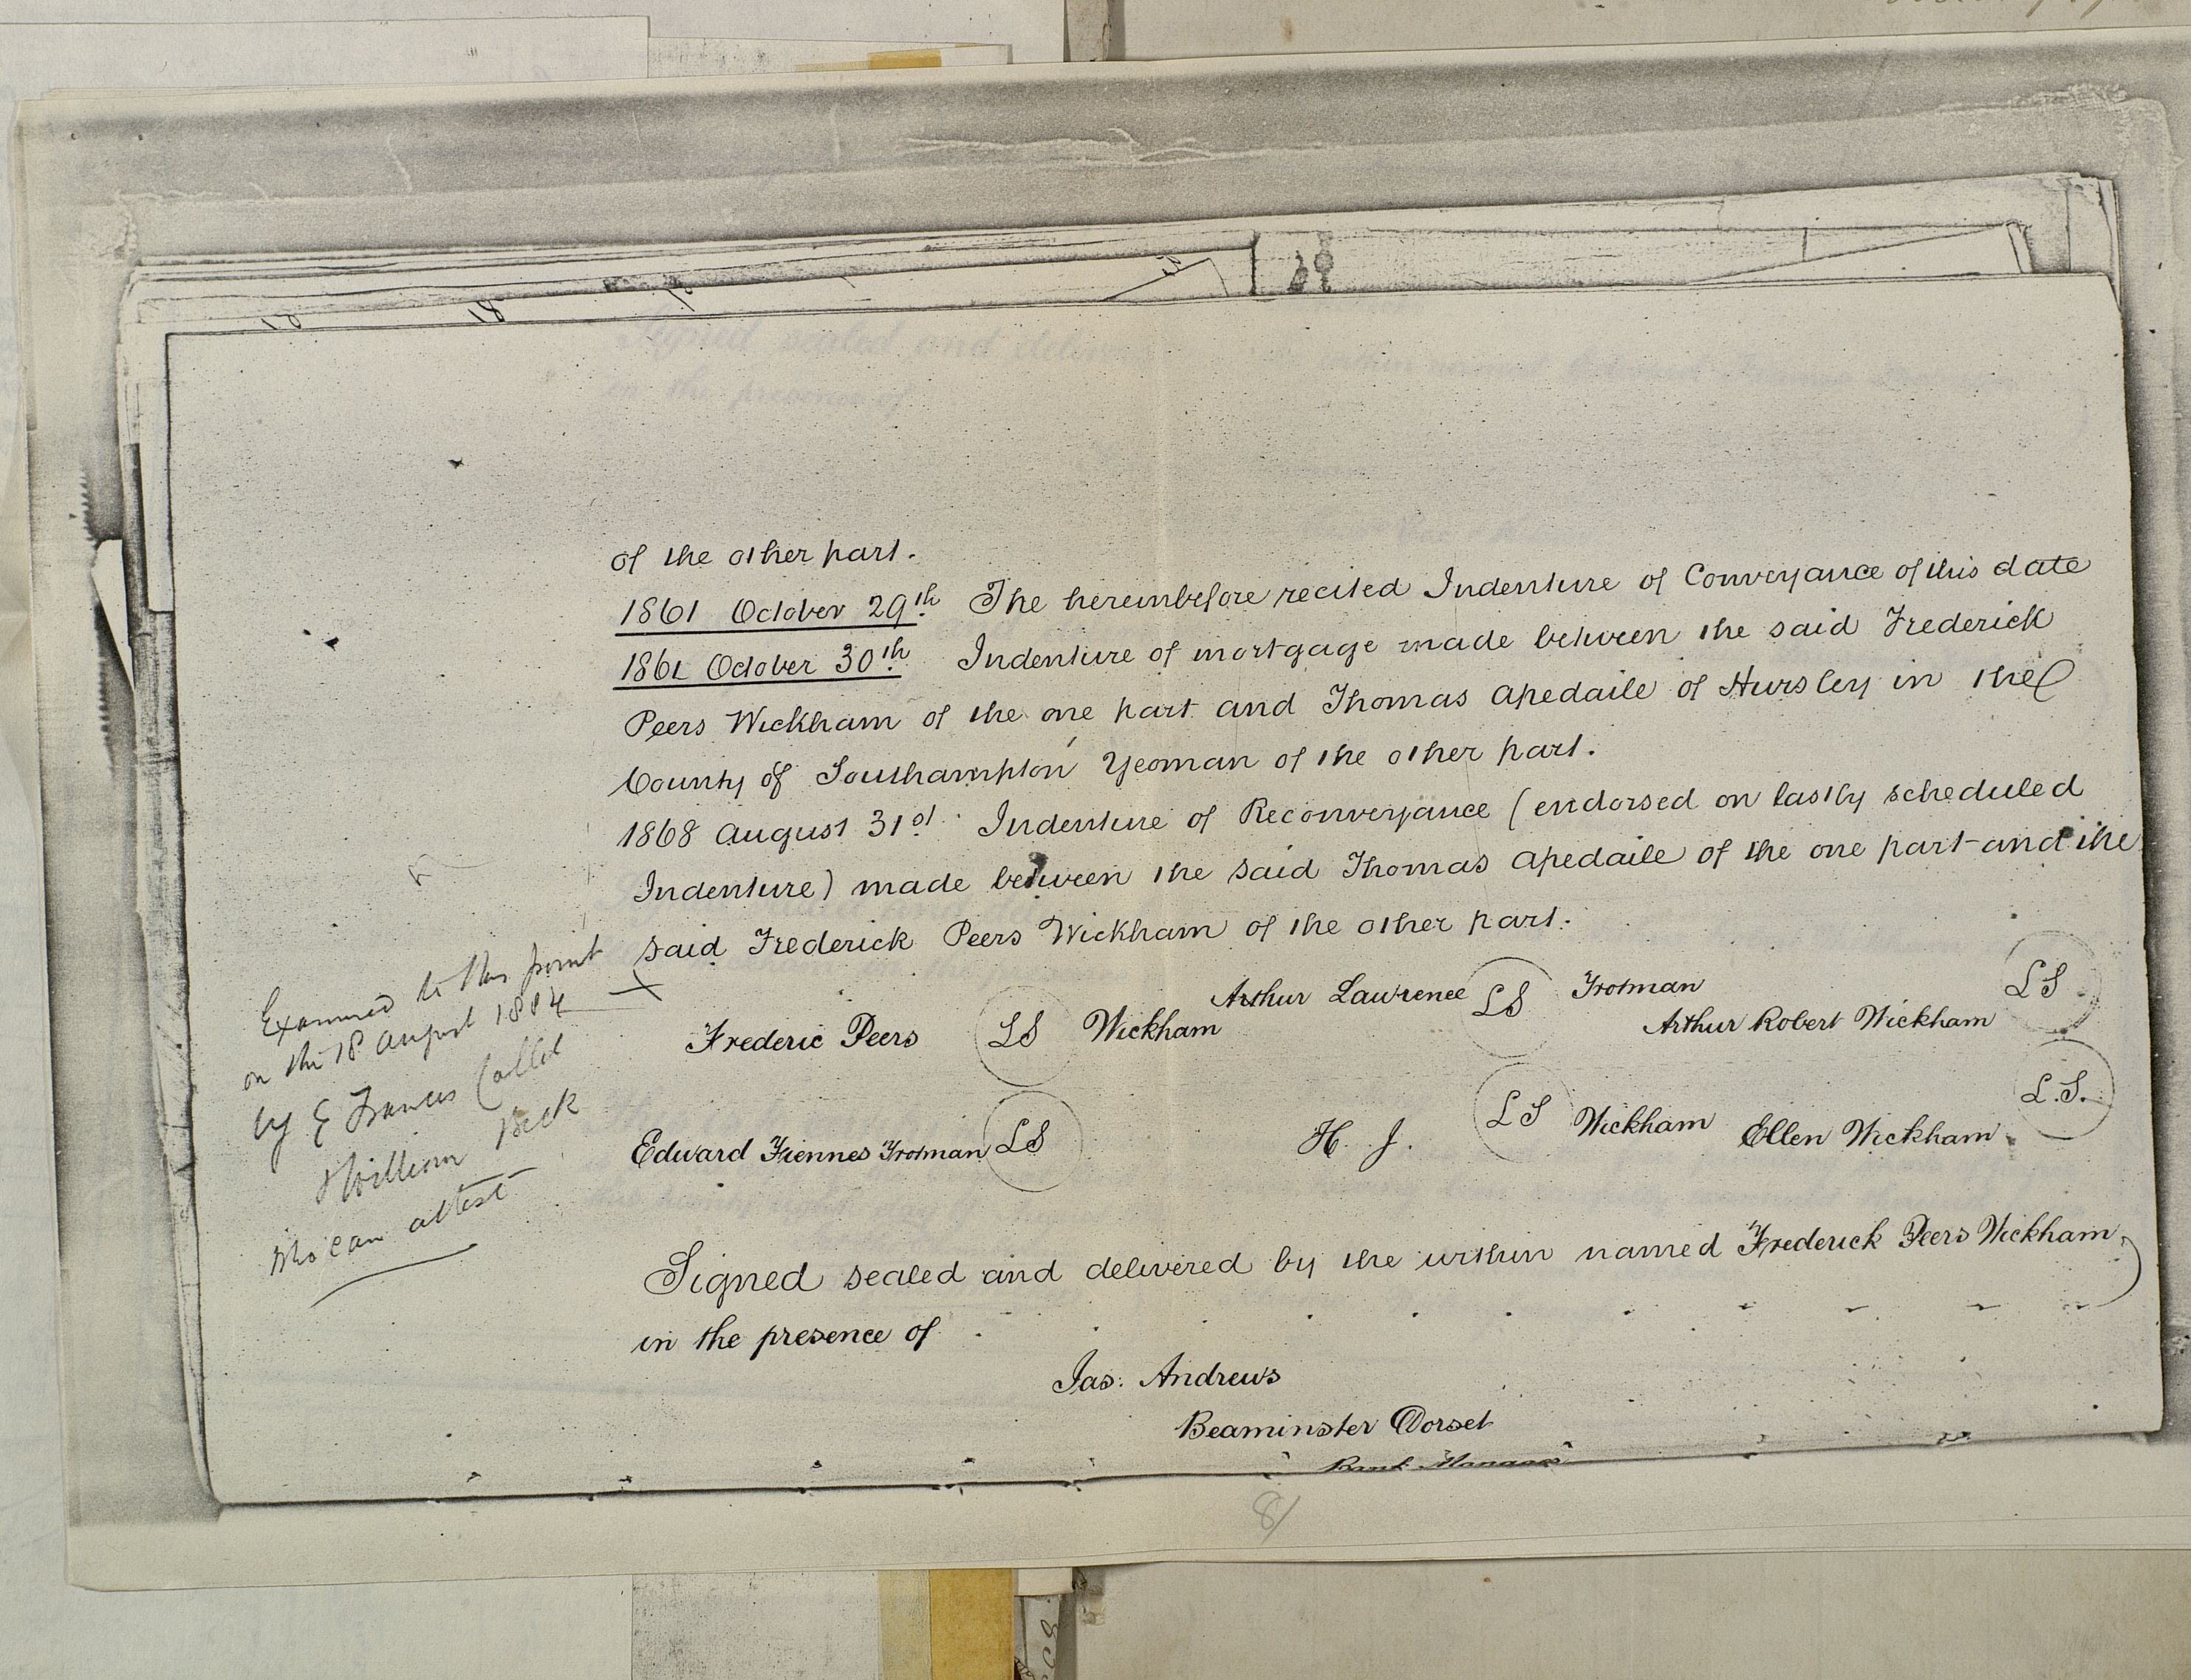 of the other part.
1861 October 29th The hereinbefore recited Indenture of Conveyance of this date
1861 October 30th Indenture of mortgage made between the said Frederick
Peers Wickham of the one part and Thomas Apedaile of Hursley in the
County of Southampton Yeoman of the other part.
1868 August 31st Indenture of Reconveyance (endorsed on lastly scheduled
Indenture) made between the said Thomas Apedaile of the one part and the
said Frederick Peers Wickham of the other part.
Examined to this point
on the 18 August 1884
by E Francis
William Beck
who can attest
Arthur Lawrence LS Trotman LS
Frederic Peers LS Wickham Arthur Robert Wickham
Edward Fiennes Trotman LS H. J. LS Wickham Ellen Wickham L.S.
Signed sealed and delivered by the within named Frederick Peers Wickham
in the presence of
Jas: Andrews
Beaminster Dorset
Bank Manager
8/